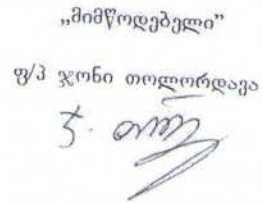 „მიმწოდებელი”
ფ/პ ჯონი თოლორდავა